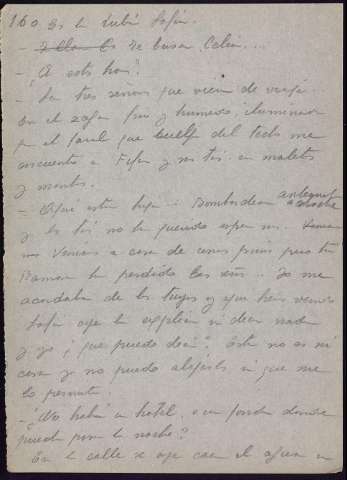 160 es la rubia Sofía.
- Ella Es Te busca, Celia...
- ¿A esta hora?
- Son tres señoras que vienen de viaje.
En el zaguan frio y humedo, iluminado
por el farol que cuelga del techo me
encuentro a Fifina y sus tías con maletas
y mantas.
- Aquí estan hija. Bombardean anteanoche
y las tías no han querido esperar mas.
nos veniamos a casa de unos primos pero tía
Ramona ha perdido las señas.. Yo me
acordaba de las tuyas y aquí hemos venido
Sofia oye la explicacion sin decir nada
y yo ¿que puedo decir? Esta no es mi
casa y no puedo alojarlas sin que me
lo permitan
- ¿No habrá un hotel, o una fonda donde
puedan pasar la noche?
En la calle se oye caer el agua en